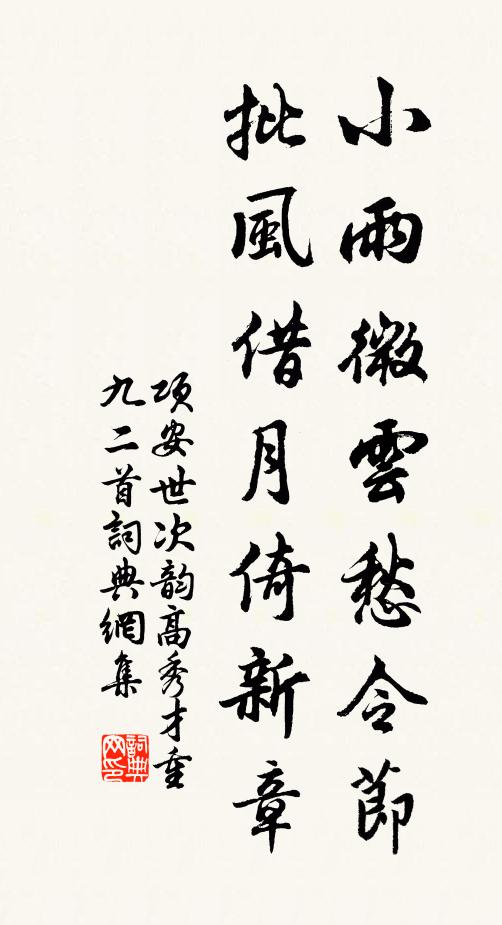 小雨微雲愁令節
批風借月倚新章
項安世次韵高秀才重
九二首詞典網集
詞典網印